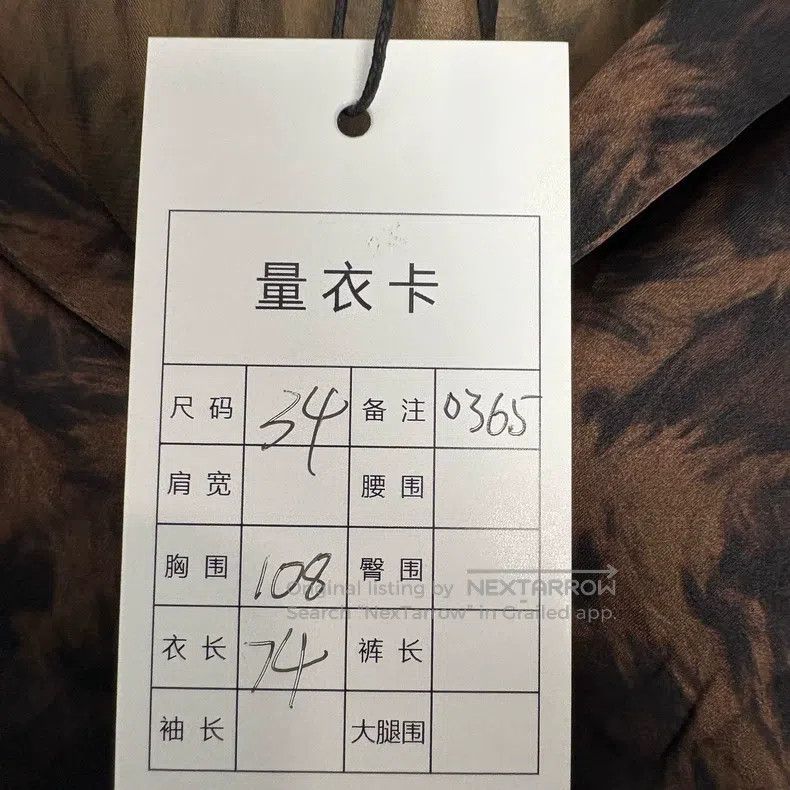 量衣卡
尺码 34 备注 0365
肩宽 腰围
胸围 108 臀围
Original listing by NEXTARROW
Search "NexTarrow" in Grailed app.
衣长 74 裤长
袖长 大腿围